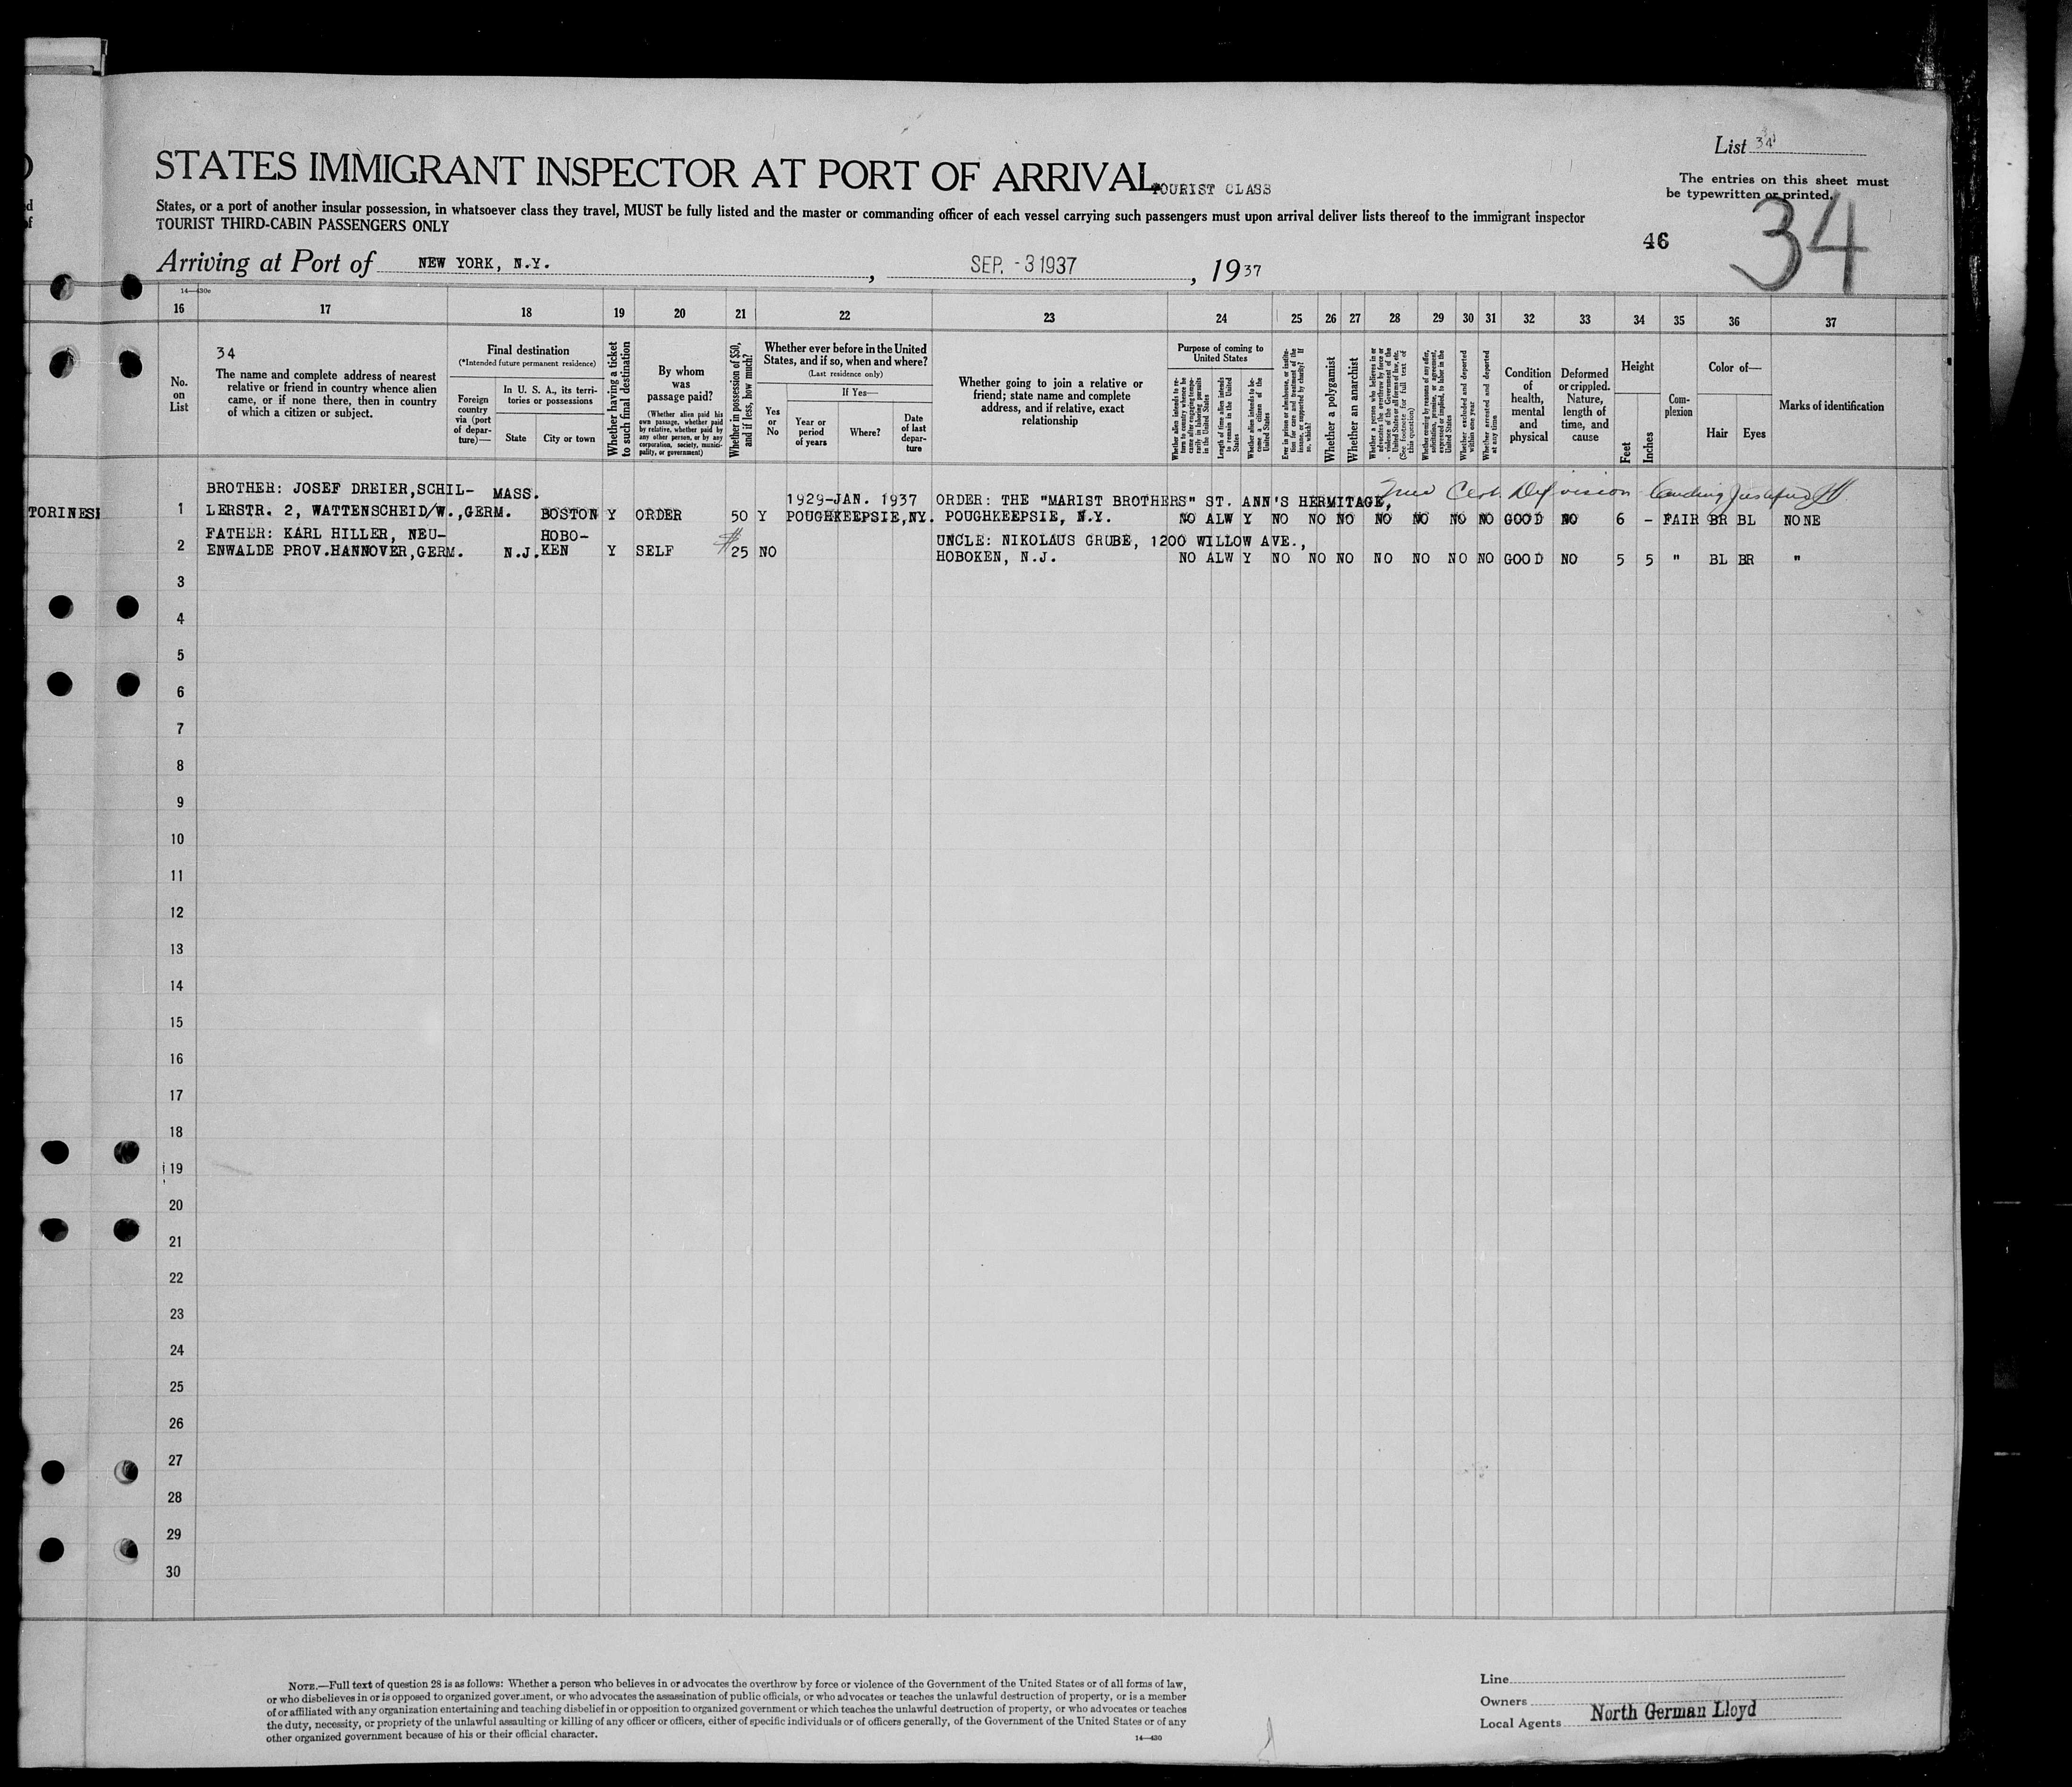 List 34
STATES IMMIGRANT INSPECTOR AT PORT OF ARRIVAL
TOURIST CLASS
The entries on this sheet must
be typewritten or printed.
States, or a port of another insular possession, in whatsoever class they travel, MUST be fully listed and the master or commanding officer of each vessel carrying such passengers must upon arrival deliver lists thereof to the immigrant inspector
TOURIST THIRD-CABIN PASSENGERS ONLY
46
34
Arriving at Port of NEW YORK, N.Y. , SEP. -3 1937 , 1937
14—430e
16 17 18 19 20 21 22 23 24 25 26 27 28 29 30 31 32 33 34 35 36 37
No.
on
List
34
The name and complete address of nearest
relative or friend in country whence alien
came, or if none there, then in country
of which a citizen or subject.
Final destination
(*Intended future permanent residence)
Foreign
country
via (port
of depar-
ture)—
In U. S. A., its terri-
tories or possessions
State
City or town
Whether having a ticket
to such final destination
By whom
was
passage paid?
(Whether alien paid his
own passage, whether paid
by relative, whether paid by
any other person, or by any
corporation, society, munici-
pality, or government)
Whether in possession of $50,
and if less, how much?
Whether ever before in the United
States, and if so, when and where?
(Last residence only)
Yes
or
No
If Yes—
Year or
period
of years
Where?
Date
of last
depar-
ture
Whether going to join a relative or
friend; state name and complete
address, and if relative, exact
relationship
Purpose of coming to
United States
Whether alien intends to re-
turn to country whence he
came after engaging tempo-
rarily in laboring pursuits
in the United States
Length of time alien intends
to remain in the United
States
Whether alien intends to be-
come a citizen of the
United States
Ever in prison or almshouse, or institu-
tion for care and treatment of the
insane, or supported by charity? If
so, which?
Whether a polygamist
Whether an anarchist
Whether a person who believes in or
advocates the overthrow by force or
violence of the Government of the
United States or all forms of law, etc.
(See footnote for full text of
this question)
Whether coming by reasons of any offer,
solicitation, promise, or agreement,
expressed or implied, to labor in the
United States
Whether excluded and deported
within one year
Whether arrested and deported
at any time
Condition
of
health,
mental
and
physical
Deformed
or crippled.
Nature,
length of
time, and
cause
Height
Feet
Inches
Com-
plexion
Color of—
Hair
Eyes
Marks of identification
BROTHER: JOSEF DREIER,SCHIL- MASS. 1929-JAN. 1937 ORDER: THE "MARIST BROTHERS" ST. ANN'S HERMITAGE,
TORINESI 1 LERSTR. 2, WATTENSCHEID/W.,GERM. BOSTON Y ORDER 50 Y POUGHKEEPSIE,NY. POUGHKEEPSIE, N.Y. NO ALW Y NO NO NO NO NO NO NO GOOD NO 6 - FAIR BR BL NONE
FATHER: KARL HILLER, NEU- HOBO- UNCLE: NIKOLAUS GRUBE, 1200 WILLOW AVE.,
2 ENWALDE PROV.HANNOVER,GERM. N.J. KEN Y SELF $25 NO HOBOKEN, N.J. NO ALW Y NO NO NO NO NO NO NO GOOD NO 5 5 " BL BR "
3
4
5
6
7
8
9
10
11
12
13
14
15
16
17
18
19
20
21
22
23
24
25
26
27
28
29
30
NOTE.—Full text of question 28 is as follows: Whether a person who believes in or advocates the overthrow by force or violence of the Government of the United States or of all forms of law,
or who disbelieves in or is opposed to organized government, or who advocates the assassination of public officials, or who advocates or teaches the unlawful destruction of property, or is a member
of or affiliated with any organization entertaining and teaching disbelief in or opposition to organized government or which teaches the unlawful destruction of property, or who advocates or teaches
the duty, necessity, or propriety of the unlawful assaulting or killing of any officer or officers, either of specific individuals or of officers generally, of the Government of the United States or of any
other organized government because of his or their official character.
14—430
Line
Owners
Local Agents North German Lloyd